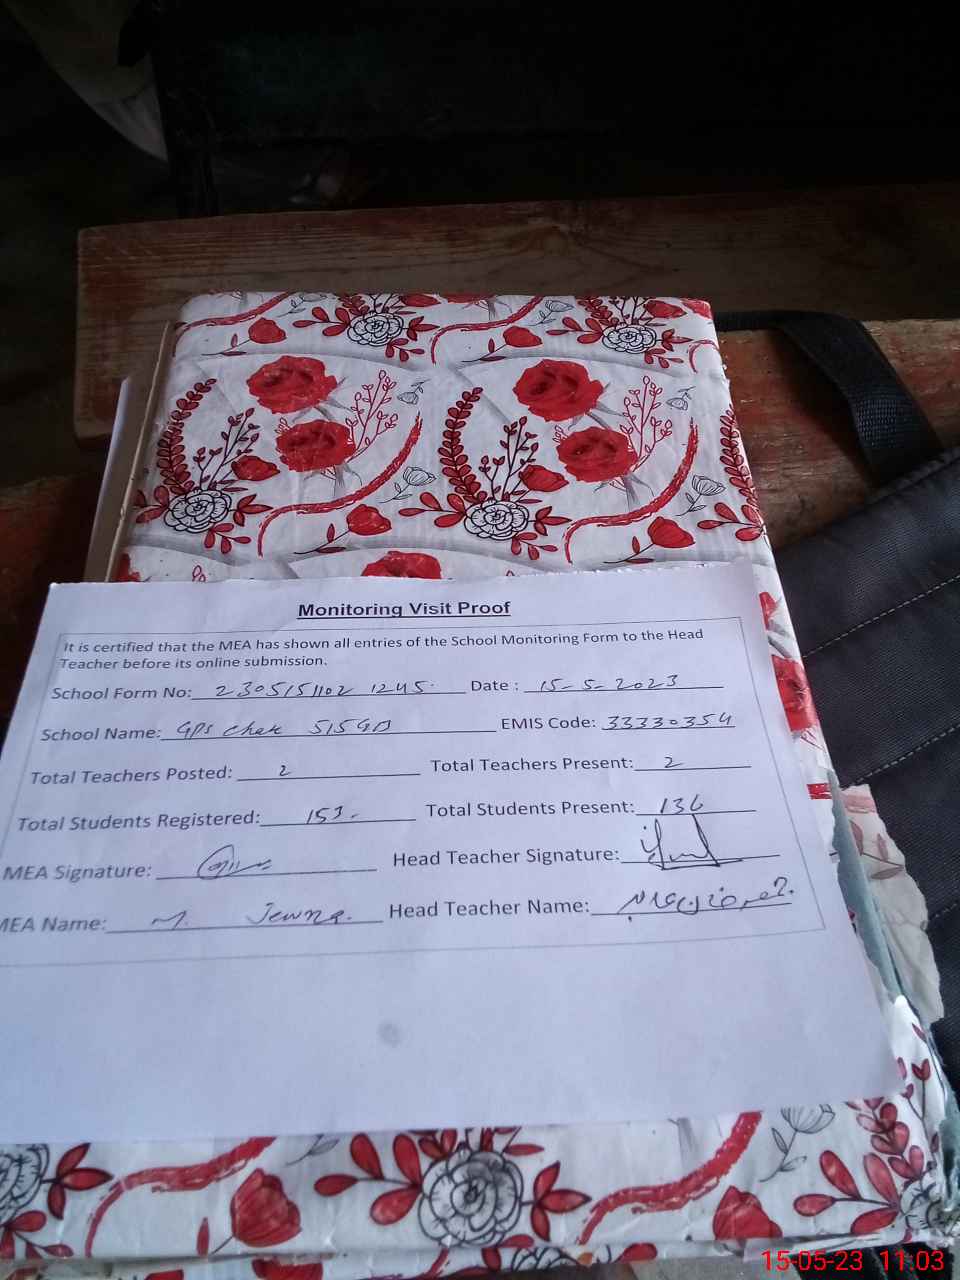 Monitoring Visit Proof
It is certified that the MEA has shown all entries of the School Monitoring Form to the Head
Teacher before its online submission.
School Form No: 2305151102 1245 Date : 15-5-2023
School Name: GPS Chak 515GB EMIS Code: 33330354
Total Teachers Posted: 2 Total Teachers Present: 2
Total Students Registered: 153 Total Students Present: 136
MEA Signature: Head Teacher Signature:
MEA Name: M. Head Teacher Name:
15-05-23 11:03